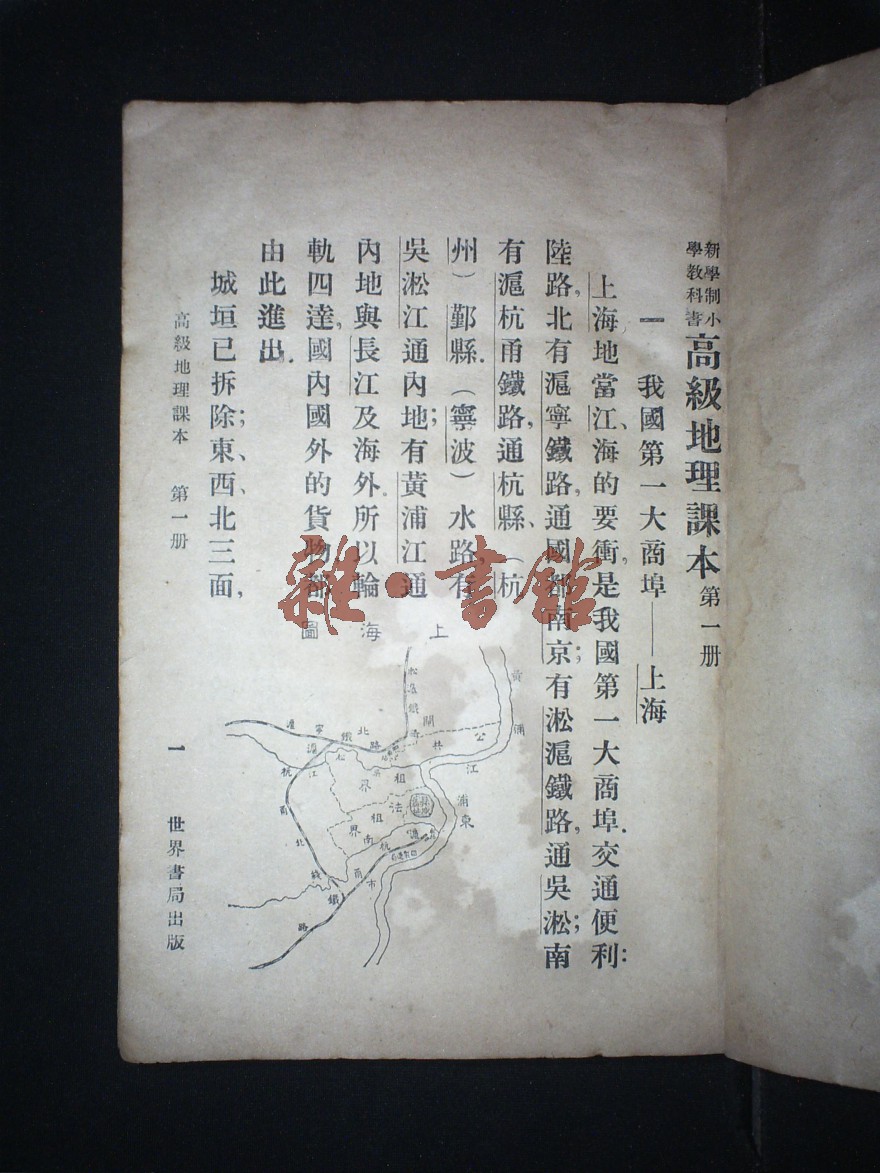 新學制小
學教科書
高級地理課本 第一册
一 我國第一大商埠——上海
上海地當江、海的要衝,是我國第一大商埠.交通便利:
陸路,北有滬寧鐵路,通國都南京;有淞滬鐵路,通吳淞;南
有滬杭甬鐵路,通杭縣、(杭
州)鄞縣.(寧波)水路,有
吳淞江通內地;有黃浦江通
內地與長江及海外.所以輪
軌四達,國內國外的貨物都
由此進出.
城垣已拆除;東、西、北三面,
上海圖
黃浦江
浦東
公共租界
法租界
南市
滬寧鐵路
滬杭甬鐵路
高級地理課本 第一册
一
世界書局出版
雜·書館